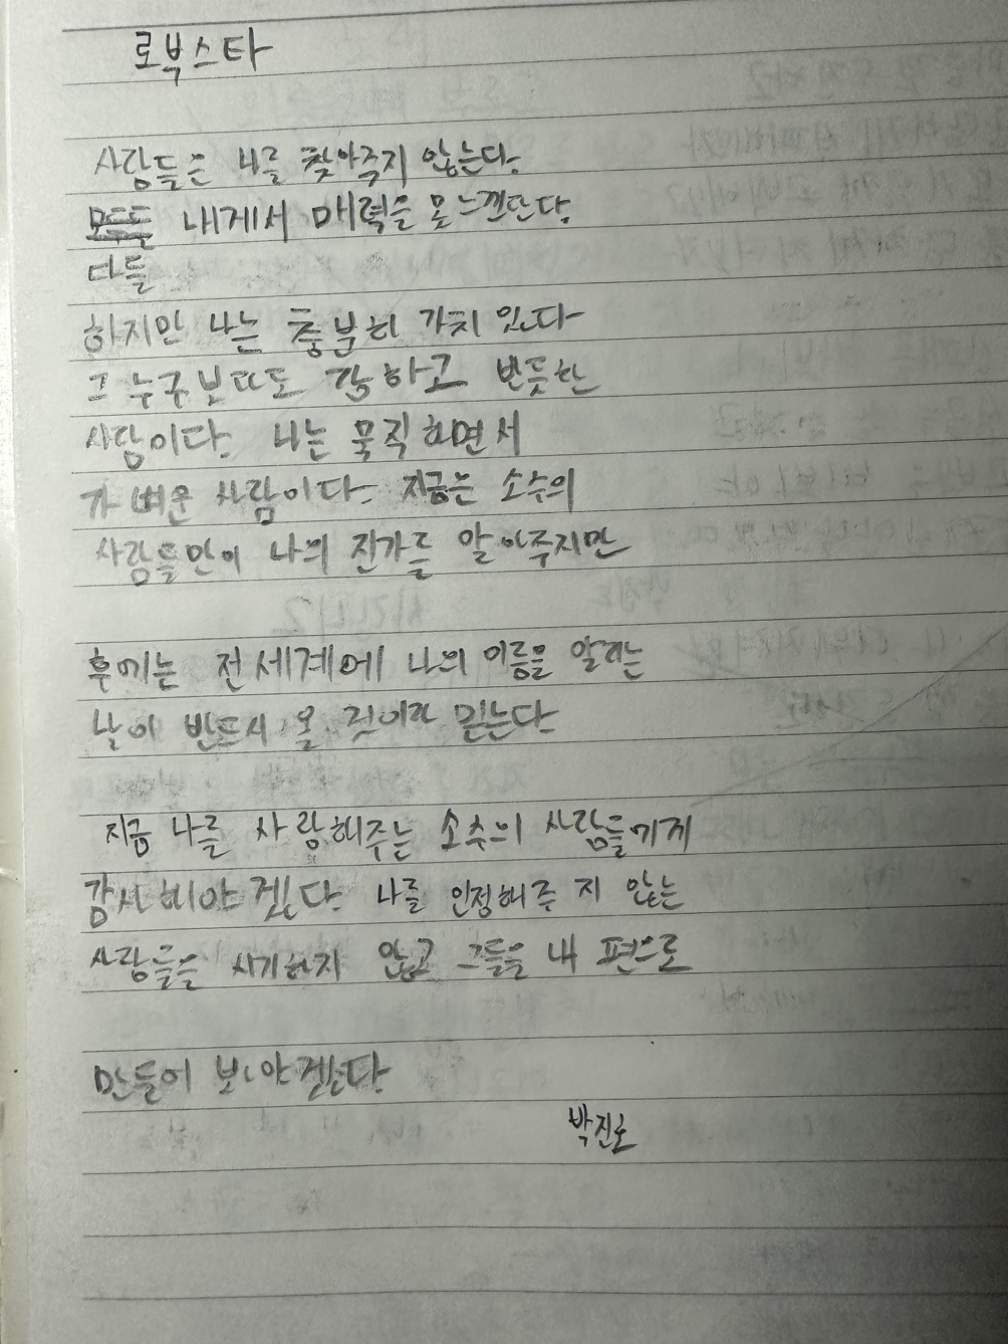 로부스타
사람들은 나를 찾아주지 않는다.
모두들 내게서 매력을 못느낀단다.
다들
하지만 나는 충분히 가치 있다
그 누구보다도 강하고 반듯한
사람이다. 나는 묵직하면서
가벼운 사람이다. 지금은 소수의
사람들만이 나의 진가를 알아주지만
후에는 전 세계에 나의 이름을 알리는
날이 반드시 올 것이라 믿는다.
지금 나를 사랑해주는 소수의 사람들에게
감사해야 겠다. 나를 인정해주지 않는
사람들을 시기하지 않고 그들을 내 편으로
만들어 보아야겠다.
박진로